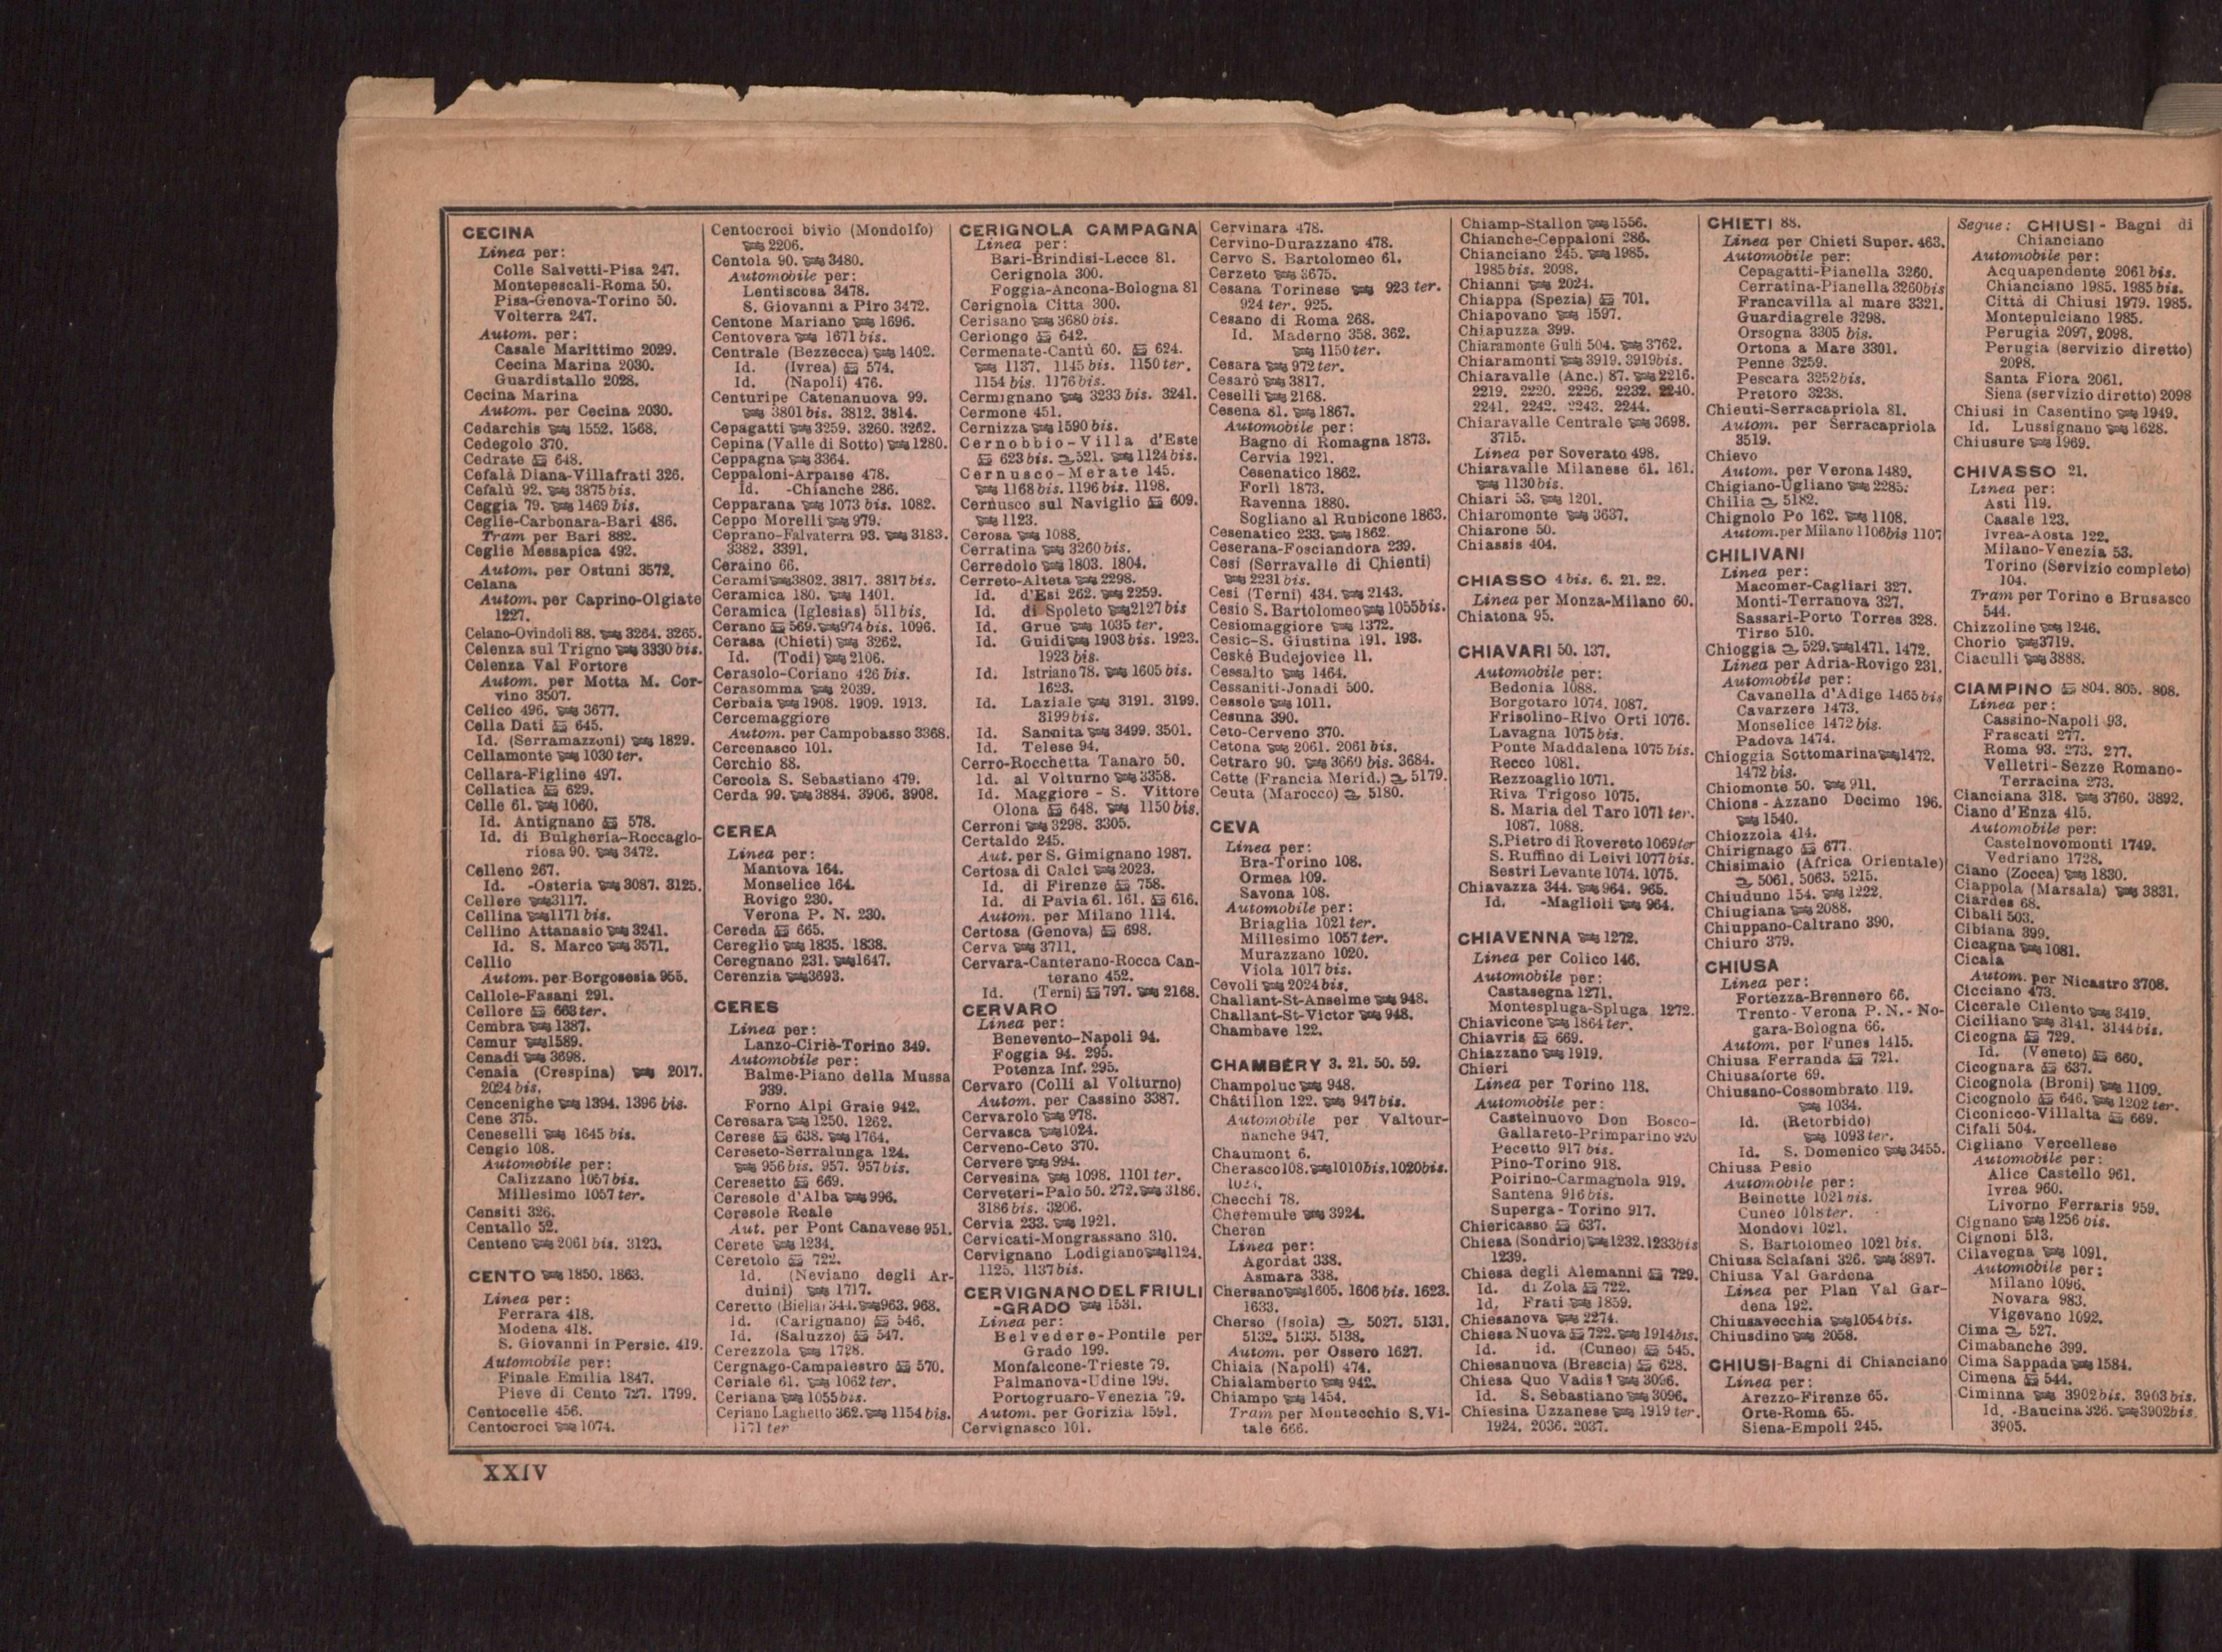 CECINA
Linea per:
Colle Salvetti-Pisa 247.
Montepescali-Roma 50.
Pisa-Genova-Torino 50.
Volterra 247.
Autom. per:
Casale Marittimo 2029.
Cecina Marina 2030.
Guardistallo 2028.
Cecina Marina
Autom. per Cecina 2030.
Cedarchis 1552. 1568.
Cedegolo 370.
Cedrate 648.
Cefalà Diana-Villafrati 326.
Cefalù 92. 3875 bis.
Ceggia 79. 1469 bis.
Ceglie-Carbonara-Bari 486.
Tram per Bari 882.
Ceglie Messapica 492.
Autom. per Ostuni 3572.
Celana
Autom. per Caprino-Olgiate
1227.
Celano-Ovindoli 88. 3264. 3265.
Celenza sul Trigno 3330 bis.
Celenza Val Fortore
Autom. per Motta M. Cor-
vino 3507.
Celico 496. 3677.
Cella Dati 645.
Id. (Serramazzoni) 1829.
Cellamonte 1030 ter.
Cellara-Figline 497.
Cellatica 629.
Celle 61. 1060.
Id. Antignano 578.
Id. di Bulgheria-Roccaglo-
riosa 90. 3472.
Celleno 267.
Id. -Osteria 3087. 3125.
Cellere 3117.
Cellina 1171 bis.
Cellino Attanasio 3241.
Id. S. Marco 3571.
Cellio
Autom. per Borgosesia 955.
Cellole-Fasani 291.
Cellore 663 ter.
Cembra 1387.
Cemur 1589.
Cenadi 3698.
Cenaia (Crespina) 2017.
2024 bis.
Cencenighe 1394. 1396 bis.
Cene 375.
Ceneselli 1645 bis.
Cengio 108.
Automobile per:
Calizzano 1057 bis.
Millesimo 1057 ter.
Censiti 326.
Centallo 52.
Centeno 2061 bis. 3123.
CENTO 1850. 1863.
Linea per:
Ferrara 418.
Modena 418.
S. Giovanni in Persic. 419.
Automobile per:
Finale Emilia 1847.
Pieve di Cento 727. 1799.
Centocelle 456.
Centocroci 1074.
Centocroci bivio (Mondolfo)
2206.
Centola 90. 3480.
Automobile per:
Lentiscosa 3478.
S. Giovanni a Piro 3472.
Centone Mariano 1696.
Centovera 1671 bis.
Centrale (Bezzecca) 1402.
Id. (Ivrea) 574.
Id. (Napoli) 476.
Centuripe Catenanuova 99.
3801 bis. 3812. 3814.
Cepagatti 3259. 3260. 3262.
Cepina (Valle di Sotto) 1280.
Ceppagna 3364.
Ceppaloni-Arpaise 478.
Id. -Chianche 286.
Cepparana 1073 bis. 1082.
Ceppo Morelli 979.
Ceprano-Falvaterra 93. 3183.
3382. 3391.
Ceraino 66.
Cerami 3802. 3817. 3817 bis.
Ceramica 180. 1401.
Ceramica (Iglesias) 511 bis.
Cerano 569. 974 bis. 1096.
Cerasa (Chieti) 3262.
Id. (Todi) 2106.
Cerasolo-Coriano 426 bis.
Cerasomma 2039.
Cerbaia 1908. 1909. 1913.
Cercemaggiore
Autom. per Campobasso 3368.
Cercenasco 101.
Cerchio 88.
Cercola S. Sebastiano 479.
Cerda 99. 3884. 3906. 3908.
CEREA
Linea per:
Mantova 164.
Monselice 164.
Rovigo 230.
Verona P. N. 230.
Cereda 665.
Cereglio 1835. 1838.
Ceregnano 231. 1647.
Cerenzia 3693.
CERES
Linea per:
Lanzo-Ciriè-Torino 349.
Automobile per:
Balme-Piano della Mussa
939.
Forno Alpi Graie 942.
Ceresara 1250. 1262.
Cerese 638. 1764.
Cereseto-Serralunga 124.
956 bis. 957. 957 bis.
Ceresetto 669.
Ceresole d'Alba 996.
Ceresole Reale
Aut. per Pont Canavese 951.
Cerete 1234.
Ceretolo 722.
Id. (Neviano degli Ar-
duini) 1717.
Ceretto (Biella) 344. 963. 968.
Id. (Carignano) 546.
Id. (Saluzzo) 547.
Cerezzola 1728.
Cergnago-Campalestro 570.
Ceriale 61. 1062 ter.
Ceriana 1055 bis.
Ceriano Laghetto 362. 1154 bis.
1171 ter
CERIGNOLA CAMPAGNA
Linea per:
Bari-Brindisi-Lecce 81.
Cerignola 300.
Foggia-Ancona-Bologna 81
Cerignola Citta 300.
Cerisano 3680 bis.
Cerlongo 642.
Cermenate-Cantù 60. 624.
1137. 1145 bis. 1150 ter.
1154 bis. 1176 bis.
Cermignano 3233 bis. 3241.
Cermone 451.
Cernizza 1590 bis.
Cernobbio-Villa d'Este
623 bis. 521. 1124 bis.
Cernusco-Merate 145.
1168 bis. 1196 bis. 1198.
Cernusco sul Naviglio 609.
1123.
Cerosa 1088.
Cerratina 3260 bis.
Cerredolo 1803. 1804.
Cerreto-Alteta 2298.
Id. d'Esi 262. 2259.
Id. di Spoleto 2127 bis
Id. Grue 1035 ter.
Id. Guidi 1903 bis. 1923.
1923 bis.
Id. Istriano 78. 1605 bis.
1623.
Id. Laziale 3191. 3199.
3199 bis.
Id. Sannita 3499. 3501.
Id. Telese 94.
Cerro-Rocchetta Tanaro 50.
Id. al Volturno 3358.
Id. Maggiore - S. Vittore
Olona 648. 1150 bis.
Cerroni 3298. 3305.
Certaldo 245.
Aut. per S. Gimignano 1987.
Certosa di Calci 2023.
Id. di Firenze 758.
Id. di Pavia 61. 161. 616.
Autom. per Milano 1114.
Certosa (Genova) 698.
Cerva 3711.
Cervara-Canterano-Rocca Can-
terano 452.
Id. (Terni) 797. 2168.
CERVARO
Linea per:
Benevento-Napoli 94.
Foggia 94. 295.
Potenza Inf. 295.
Cervaro (Colli al Volturno)
Autom. per Cassino 3387.
Cervarolo 978.
Cervasca 1024.
Cerveno-Ceto 370.
Cervere 994.
Cervesina 1098. 1101 ter.
Cerveteri-Palo 50. 272. 3186.
3186 bis. 3206.
Cervia 233. 1921.
Cervicati-Mongrassano 310.
Cervignano Lodigiano 1124.
1125. 1137 bis.
CERVIGNANO DEL FRIULI
-GRADO 1531.
Linea per:
Belvedere-Pontile per
Grado 199.
Monfalcone-Trieste 79.
Palmanova-Udine 199.
Portogruaro-Venezia 79.
Autom. per Gorizia 1591.
Cervignasco 101.
Cervinara 478.
Cervino-Durazzano 478.
Cervo S. Bartolomeo 61.
Cerzeto 3675.
Cesana Torinese 923 ter.
924 ter. 925.
Cesano di Roma 268.
Id. Maderno 358. 362.
1150 ter.
Cesara 972 ter.
Cesarò 3817.
Ceselli 2168.
Cesena 81. 1867.
Automobile per:
Bagno di Romagna 1873.
Cervia 1921.
Cesenatico 1862.
Forlì 1873.
Ravenna 1880.
Sogliano al Rubicone 1863.
Cesenatico 233. 1862.
Ceserana-Fosciandora 239.
Cesi (Serravalle di Chienti)
2231 bis.
Cesi (Terni) 434. 2143.
Cesio S. Bartolomeo 1055 bis.
Cesiomaggiore 1372.
Cesio-S. Giustina 191. 193.
Ceské Budejovice 11.
Cessalto 1464.
Cessaniti-Jonadi 500.
Cessole 1011.
Cesuna 390.
Ceto-Cerveno 370.
Cetona 2061. 2061 bis.
Cetraro 90. 3660 bis. 3684.
Cette (Francia Merid.) 5179.
Ceuta (Marocco) 5180.
CEVA
Linea per:
Bra-Torino 108.
Ormea 109.
Savona 108.
Automobile per:
Briaglia 1021 ter.
Millesimo 1057 ter.
Murazzano 1020.
Viola 1017 bis.
Cevoli 2024 bis.
Challant-St-Anselme 948.
Challant-St-Victor 948.
Chambave 122.
CHAMBÉRY 3. 21. 50. 59.
Champoluc 948.
Châtillon 122. 947 bis.
Automobile per Valtour-
nanche 947.
Chaumont 6.
Cherasco 108. 1010 bis. 1020 bis.
Checchi 78.
Cheremule 3924.
Cheren
Linea per:
Agordat 338.
Asmara 338.
Chersano 1605. 1606 bis. 1623.
1633.
Cherso (Isola) 5027. 5131.
5132. 5133. 5138.
Autom. per Ossero 1627.
Chiaia (Napoli) 474.
Chialamberto 942.
Chiampo 1454.
Tram per Montecchio S. Vi-
tale 666.
Chiamp-Stallon 1556.
Chianche-Ceppaloni 286.
Chianciano 245. 1985.
1985 bis. 2098.
Chianni 2024.
Chiappa (Spezia) 701.
Chiapovano 1597.
Chiapuzza 399.
Chiaramonte Gulfi 504. 3762.
Chiaramonti 3919. 3919 bis.
Chiaravalle (Anc.) 87. 2216.
2219. 2220. 2226. 2232. 2240.
2241. 2242. 2243. 2244.
Chiaravalle Centrale 3698.
3715.
Linea per Soverato 498.
Chiaravalle Milanese 61. 161.
1130 bis.
Chiari 53. 1201.
Chiaromonte 3637.
Chiarone 50.
Chiassis 404.
CHIASSO 4 bis. 6. 21. 22.
Linea per Monza-Milano 60.
Chiatona 95.
CHIAVARI 50. 137.
Automobile per:
Bedonia 1088.
Borgotaro 1074. 1087.
Frisolino-Rivo Orti 1076.
Lavagna 1075 bis.
Ponte Maddalena 1075 bis.
Recco 1081.
Rezzoaglio 1071.
Riva Trigoso 1075.
S. Maria del Taro 1071 ter.
1087. 1088.
S. Pietro di Rovereto 1069 ter
S. Ruffino di Leivi 1077 bis.
Sestri Levante 1074. 1075.
Chiavazza 344. 964. 965.
Id. -Maglioli 964.
CHIAVENNA 1272.
Linea per Colico 146.
Automobile per:
Castasegna 1271.
Montespluga-Spluga 1272.
Chiavicone 1864 ter.
Chiavris 669.
Chiazzano 1919.
Chieri
Linea per Torino 118.
Automobile per:
Castelnuovo Don Bosco-
Gallareto-Primparino 920
Pecetto 917 bis.
Pino-Torino 918.
Poirino-Carmagnola 919.
Santena 916 bis.
Superga-Torino 917.
Chiericasso 637.
Chiesa (Sondrio) 1232. 1233 bis
1239.
Chiesa degli Alemanni 729.
Id. di Zola 722.
Id. Frati 1859.
Chiesanova 2274.
Chiesa Nuova 722. 1914 bis.
Id. id. (Cuneo) 545.
Chiesanuova (Brescia) 628.
Chiesa Quo Vadis! 3096.
Id. S. Sebastiano 3096.
Chiesina Uzzanese 1919 ter.
1924. 2036. 2037.
CHIETI 88.
Linea per Chieti Super. 463.
Automobile per:
Cepagatti-Pianella 3260.
Cerratina-Pianella 3260 bis
Francavilla al mare 3321.
Guardiagrele 3298.
Orsogna 3305 bis.
Ortona a Mare 3301.
Penne 3259.
Pescara 3252 bis.
Pretoro 3238.
Chieuti-Serracapriola 81.
Autom. per Serracapriola
3519.
Chievo
Autom. per Verona 1489.
Chigiano-Ugliano 2285.
Chilia 5182.
Chignolo Po 162. 1108.
Autom. per Milano 1106 bis 1107
CHILIVANI
Linea per:
Macomer-Cagliari 327.
Monti-Terranova 327.
Sassari-Porto Torres 328.
Tirso 510.
Chioggia 529. 1471. 1472.
Linea per Adria-Rovigo 231.
Automobile per:
Cavanella d'Adige 1465 bis
Cavarzere 1473.
Monselice 1472 bis.
Padova 1474.
Chioggia Sottomarina 1472.
1472 bis.
Chiomonte 50. 911.
Chions-Azzano Decimo 196.
1540.
Chiozzola 414.
Chirignago 677.
Chisimaio (Africa Orientale)
5061. 5063. 5215.
Chiuduno 154. 1222.
Chiugiana 2088.
Chiuppano-Caltrano 390.
Chiuro 379.
CHIUSA
Linea per:
Fortezza-Brennero 66.
Trento-Verona P. N.-No-
gara-Bologna 66.
Autom. per Funes 1415.
Chiusa Ferranda 721.
Chiusaforte 69.
Chiusano-Cossombrato 119.
1034.
Id. (Retorbido)
1093 ter.
Id. S. Domenico 3455.
Chiusa Pesio
Automobile per:
Beinette 1021 bis.
Cuneo 1018 ter.
Mondovì 1021.
S. Bartolomeo 1021 bis.
Chiusa Sclafani 326. 3897.
Chiusa Val Gardena
Linea per Plan Val Gar-
dena 192.
Chiusavecchia 1054 bis.
Chiusdino 2058.
CHIUSI-Bagni di Chianciano
Linea per:
Arezzo-Firenze 65.
Orte-Roma 65.
Siena-Empoli 245.
Segue: CHIUSI - Bagni di
Chianciano
Automobile per:
Acquapendente 2061 bis.
Chianciano 1985. 1985 bis.
Città di Chiusi 1979. 1985.
Montepulciano 1985.
Perugia 2097, 2098.
Perugia (servizio diretto)
2098.
Santa Fiora 2061.
Siena (servizio diretto) 2098
Chiusi in Casentino 1949.
Id. Lussignano 1628.
Chiusure 1969.
CHIVASSO 21.
Linea per:
Asti 119.
Casale 123.
Ivrea-Aosta 122.
Milano-Venezia 53.
Torino (Servizio completo)
104.
Tram per Torino e Brusasco
544.
Chizzoline 1246.
Chorio 3719.
Ciaculli 3888.
CIAMPINO 804. 805. 808.
Linea per:
Cassino-Napoli 93.
Frascati 277.
Roma 93. 273. 277.
Velletri-Sezze Romano-
Terracina 273.
Cianciana 318. 3760. 3892.
Ciano d'Enza 415.
Automobile per:
Castelnovomonti 1749.
Vedriano 1728.
Ciano (Zocca) 1830.
Ciappola (Marsala) 3831.
Ciardes 68.
Cibali 503.
Cibiana 399.
Cicagna 1081.
Cicala
Autom. per Nicastro 3708.
Cicciano 473.
Cicerale Cilento 3419.
Ciciliano 3141. 3144 bis.
Cicogna 729.
Id. (Veneto) 660.
Cicognara 637.
Cicognola (Broni) 1109.
Cicognolo 646. 1202 ter.
Ciconicco-Villalta 669.
Cifali 504.
Cigliano Vercellese
Automobile per:
Alice Castello 961.
Ivrea 960.
Livorno Ferraris 959.
Cignano 1256 bis.
Cignoni 513.
Cilavegna 1091.
Automobile per:
Milano 1096.
Novara 983.
Vigevano 1092.
Cima 527.
Cimabanche 399.
Cima Sappada 1584.
Cimena 544.
Ciminna 3902 bis. 3903 bis.
Id. -Baucina 326. 3902 bis.
3905.
XXIV